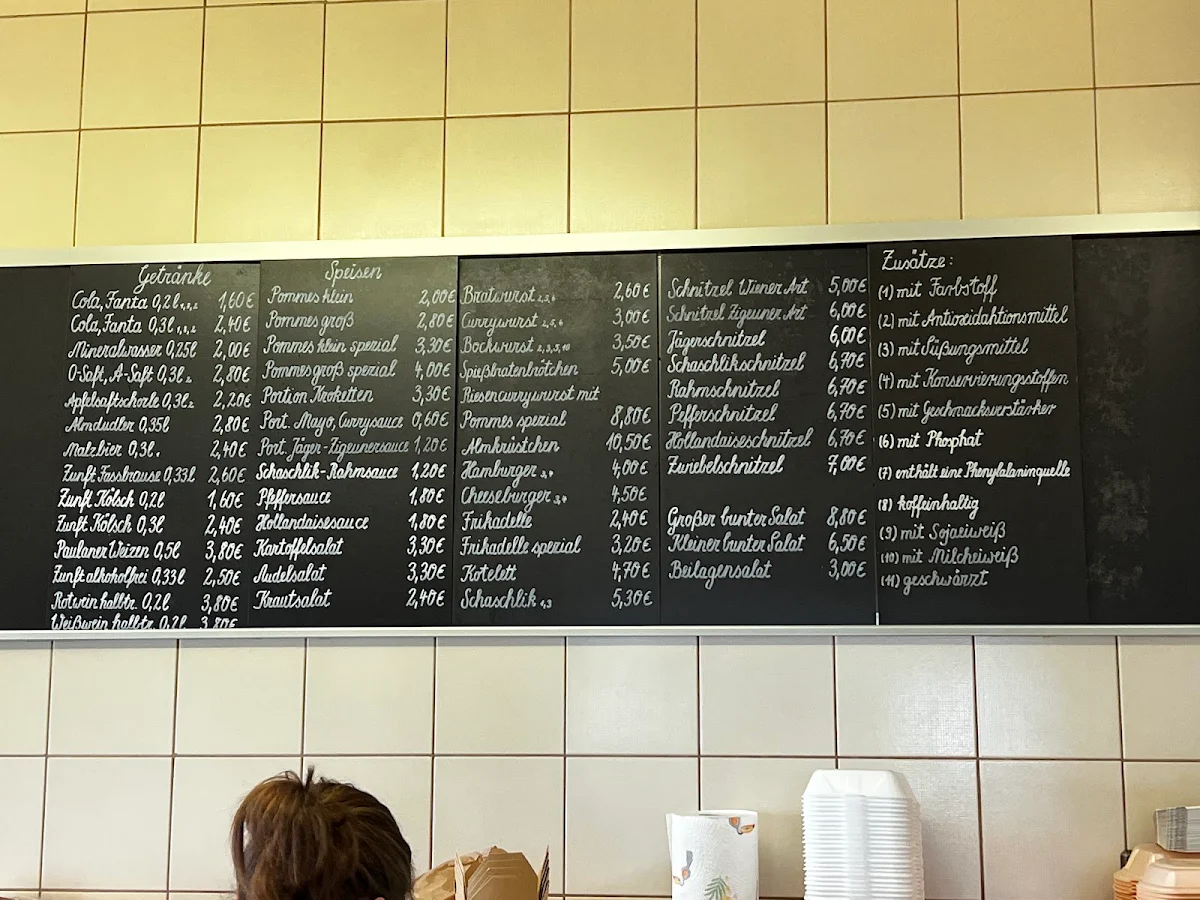 Getränke
Cola, Fanta 0,2l 1,60€
Cola, Fanta 0,3l 2,40€
Mineralwasser 0,25l 2,00€
O-Saft, A-Saft 0,3l 2,80€
Apfelsaftschorle 0,3l 2,20€
Almdudler 0,35l 2,80€
Malzbier 0,3l 2,40€
Zunft Fassbrause 0,33l 2,60€
Zunft Kölsch 0,2l 1,60€
Zunft Kölsch 0,3l 2,40€
Paulaner Weizen 0,5l 3,80€
Zunft alkoholfrei 0,33l 2,50€
Rotwein halbtr. 0,2l 3,80€
Weißwein halbtr. 0,2l 3,80€
Speisen
Pommes klein 2,00€
Pommes groß 2,80€
Pommes klein spezial 3,30€
Pommes groß spezial 4,00€
Portion Kroketten 3,30€
Port. Mayo, Currysauce 0,60€
Port. Jäger-Zigeunersauce 1,20€
Schaschlik-Rahmsauce 1,20€
Pfeffersauce 1,80€
Hollandaisesauce 1,80€
Kartoffelsalat 3,30€
Nudelsalat 3,30€
Krautsalat 2,40€
Bratwurst 2,60€
Currywurst 3,00€
Bockwurst 3,50€
Spießbratenbrötchen 5,00€
Riesencurrywurst mit
Pommes spezial 8,80€
Almkrüstchen 10,50€
Hamburger 4,00€
Cheeseburger 4,50€
Frikadelle 2,40€
Frikadelle spezial 3,20€
Kotelett 4,70€
Schaschlik 5,30€
Schnitzel Wiener Art 5,00€
Schnitzel Zigeuner Art 6,00€
Jägerschnitzel 6,00€
Schaschlikschnitzel 6,70€
Rahmschnitzel 6,70€
Pfefferschnitzel 6,70€
Hollandaiseschnitzel 6,70€
Zwiebelschnitzel 7,00€
Großer bunter Salat 8,80€
Kleiner bunter Salat 6,50€
Beilagensalat 3,00€
Zusätze:
(1) mit Farbstoff
(2) mit Antioxidaktionsmittel
(3) mit Süßungsmittel
(4) mit Konservierungsstoffen
(5) mit Geschmacksverstärker
(6) mit Phosphat
(7) enthält eine Phenylalaninquelle
(8) koffeinhaltig
(9) mit Sojaeiweiß
(10) mit Milcheiweiß
(11) geschwärzt